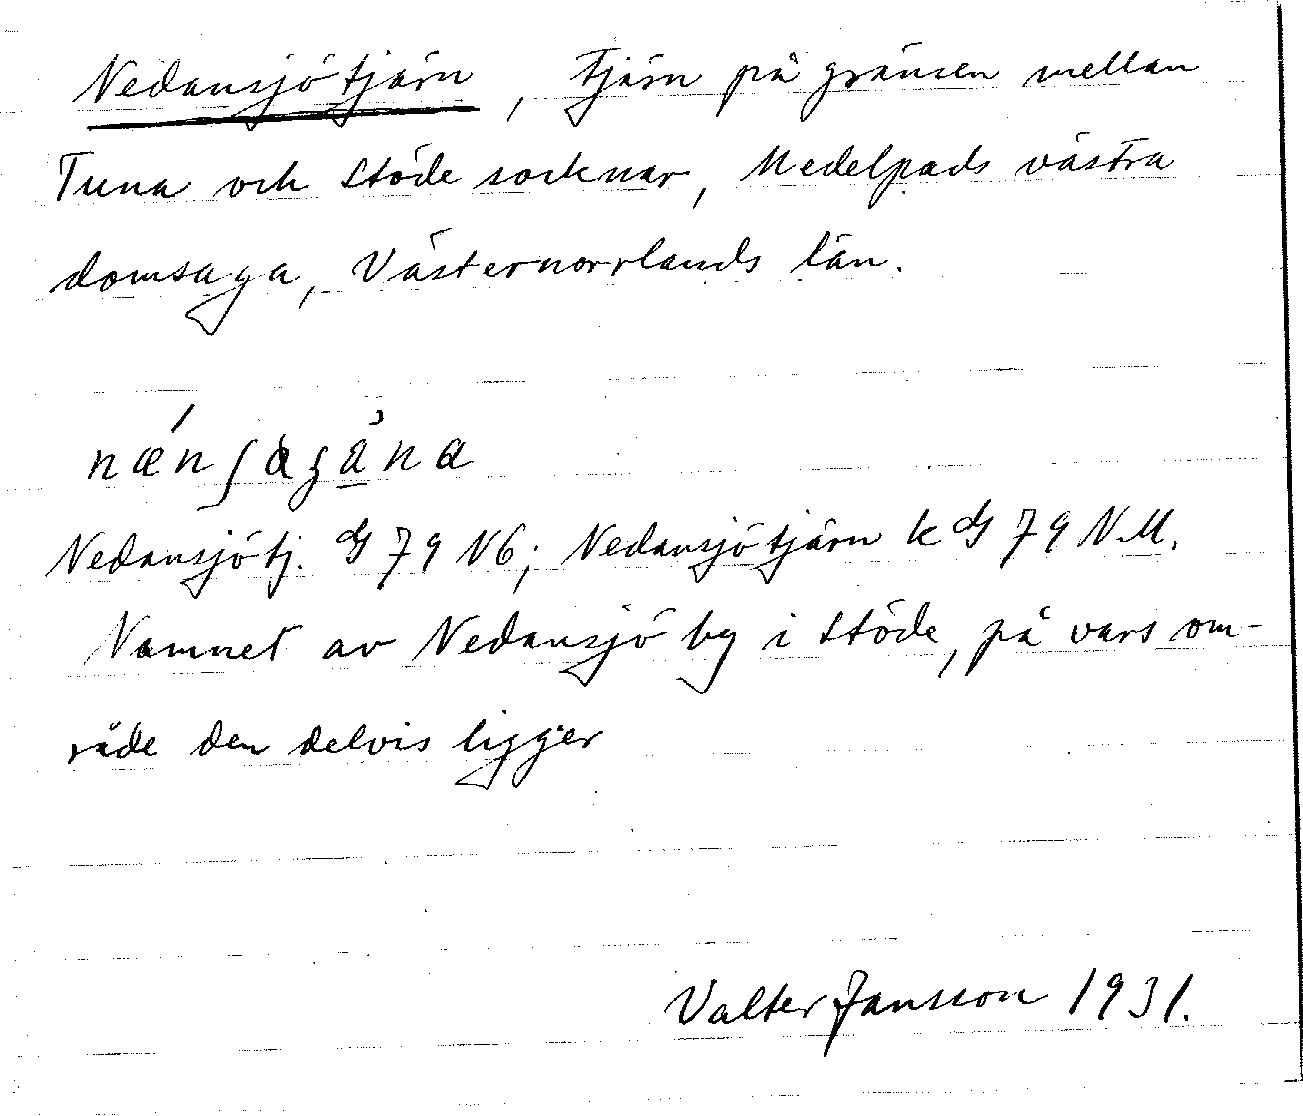 Nedansjötjärn, tjärn på gränsen mellan
Tuna och Stöde socknar, Medelpads västra
domsaga, Västernorrlands län.
Nedansjötj. G 79 N6; Nedansjötjärn k G 79 N.M.
Namnet av Nedansjö by i Stöde, på vars om-
råde den delvis ligger
Valter Jansson 1931.